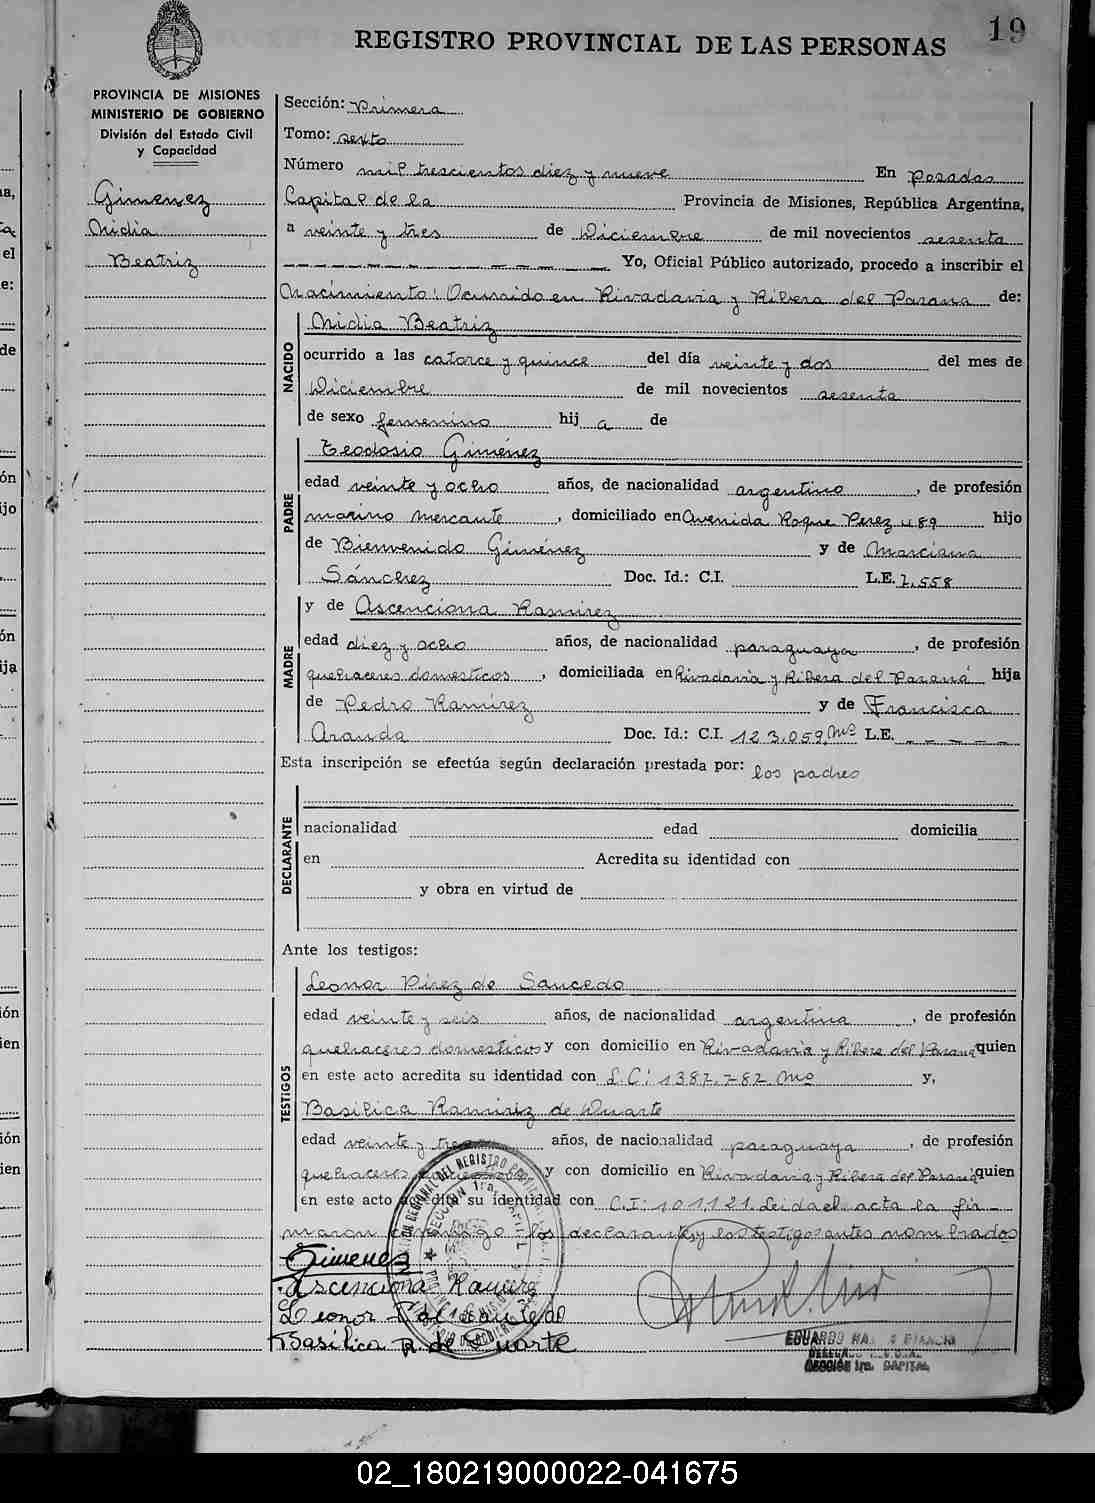 19
REGISTRO PROVINCIAL DE LAS PERSONAS
PROVINCIA DE MISIONES
MINISTERIO DE GOBIERNO
División del Estado Civil
y Capacidad
Gimenez
Nidia
Beatriz
Sección: Primera
Tomo: sexto
Número mil trescientos diez y nueve En Posadas
Capital de la Provincia de Misiones, República Argentina,
a veinte y tres de Diciembre de mil novecientos sesenta
Yo, Oficial Público autorizado, procedo a inscribir el
Nacimiento: Ocurrido en Rivadavia y Ribera del Parana de:
NACIDO
Nidia Beatriz
ocurrido a las catorce y quince del día veinte y dos del mes de
Diciembre de mil novecientos sesenta
de sexo femenino hij a de
PADRE
Teodosio Giménez
edad veinte y ocho años, de nacionalidad argentino, de profesión
marino mercante, domiciliado en Avenida Roque Perez 489 hijo
de Bienvenido Giménez y de Marciana
Sánchez Doc. Id.: C.I. L.E.
MADRE
y de Ascenciona Ramirez
edad diez y ocho años, de nacionalidad paraguaya, de profesión
quehaceres domesticos, domiciliada en Rivadavia y Ribera del Paraná hija
de Pedro Ramírez y de Francisca
Aranda Doc. Id.: C.I. 123.059 Mº L.E. - - - - -
Esta inscripción se efectúa según declaración prestada por: los padres
DECLARANTE
nacionalidad edad domicilia
en Acredita su identidad con
y obra en virtud de
Ante los testigos:
TESTIGOS
Leonor Pirez de Saucedo
edad veinte y seis años, de nacionalidad argentina, de profesión
quehaceres domesticos y con domicilio en Rivadavia y Ribera del Parana quien
en este acto acredita su identidad con L.C: 1387.782 Mº y,
Basilica Ramirez de Duarte
edad veinte y tres años, de nacionalidad paraguaya, de profesión
quehaceres y con domicilio en Rivadavia y Ribera del Parana quien
en este acto su identidad con C.I: 101121. Leida el acta la fir-
maron conmigo los declarantes y los testigos antes nombrados
Gimenez
Ascenciona Ramirez
Leonor
Basilica R. de Duarte
EDUARDO
SECCIÓN 1ra. CAPITAL
02_180219000022-041675